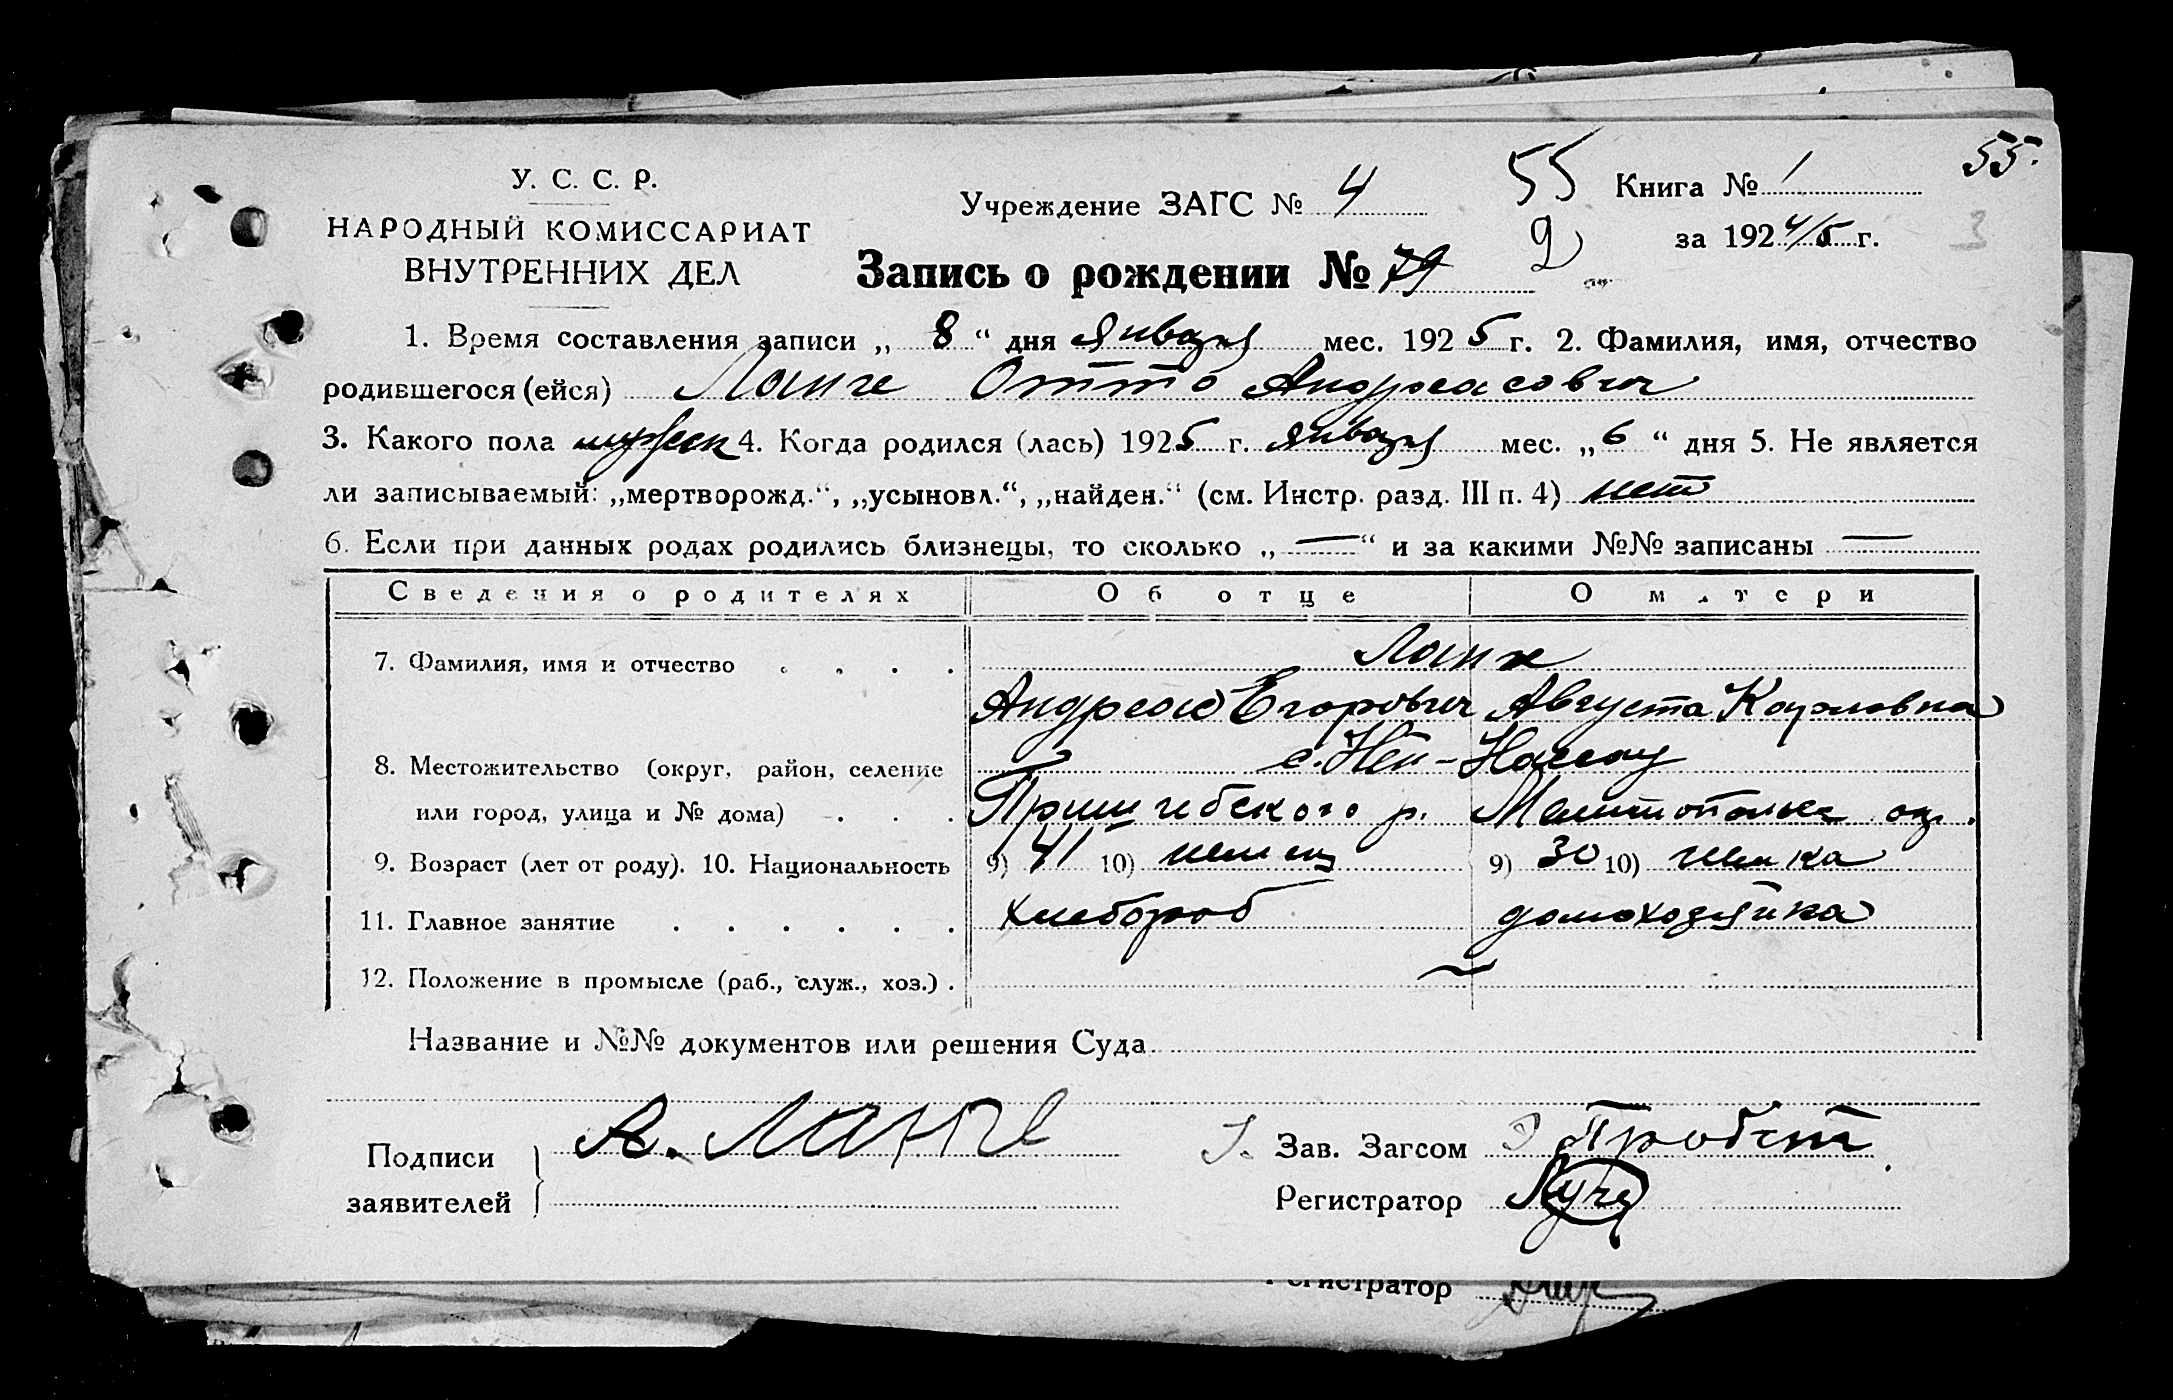 55.
У. С. С. Р.
НАРОДНЫЙ КОМИССАРИАТ
ВНУТРЕННИХ ДЕЛ
Учреждение ЗАГС № 4
55
Книга № 1
за 1924/5 г.
3
Запись о рождении № 79
2
1. Время составления записи „ 8 “ дня Января мес. 1925 г. 2. Фамилия, имя, отчество
родившегося (ейся) Ланге Отто Андреасович
3. Какого пола мужск 4. Когда родился (лась) 1925 г. Января мес. „ 6 “ дня 5. Не является
ли записываемый: „мертворожд.“, „усыновл.“, „найден.“ (см. Инстр. разд. III п. 4) нет
6. Если при данных родах родились близнецы, то сколько „ — “ и за какими №№ записаны —
Сведения о родителях Об отце О матери
7. Фамилия, имя и отчество . . . . Ланге
Андреас Егорович Августа Карловна
8. Местожительство (округ, район, селение с. Ней-Нассау
или город, улица и № дома) . . . Пришибского р. Мелитопольск окр.
9. Возраст (лет от роду). 10. Национальность 9) 41 10) немец 9) 30 10) немка
11. Главное занятие . . . . . . хлебороб домохозяйка
12. Положение в промысле (раб., служ., хоз.) . —
Название и №№ документов или решения Суда
Подписи
заявителей
А. Ланге
Зав. Загсом Пробст
Регистратор
Регистратор